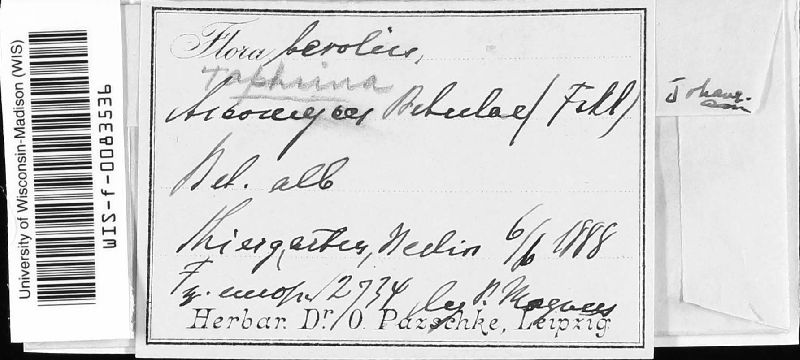 University of Wisconsin-Madison (WIS)
WIS-f-0083536
Flora berolin.
Taphrina
Ascomyces Betulae (Fckl)
Johanson
Bet. alb
Thiergarten, Berlin 6/6 1888
F. europ. 2734 leg. P. Magnus
Herbar. Dr. O. Pazschke, Leipzig.